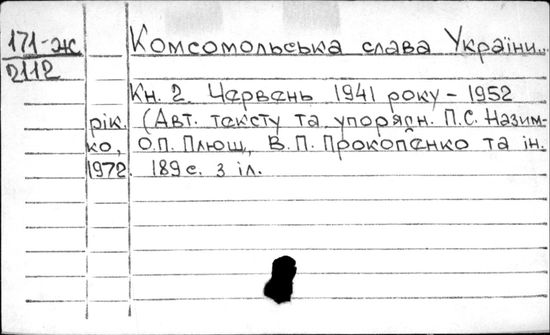 171-ж
2112
Комсомольська слава України..
Кн. 2. Червень 1941 року - 1952
рік. (Авт. тексту та упорядн. П.С. Назим-
ко, О.П. Плющ, В.П. Прокопенко та ін.
1972. 189 с. з іл.